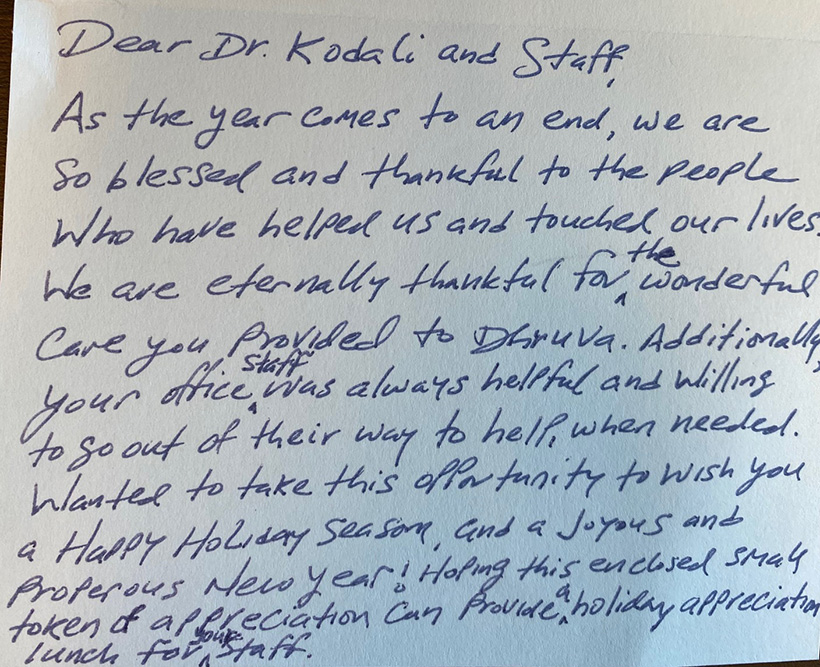 Dear Dr. Kodali and Staff,
As the year comes to an end, we are
so blessed and thankful to the people
who have helped us and touched our lives.
We are eternally thankful for the wonderful
care you provided to Dhruva. Additionally,
your office staff was always helpful and willing
to go out of their way to help, when needed.
Wanted to take this opportunity to wish you
a Happy Holiday Season, and a Joyous and
Properous New Year! Hoping this enclosed small
token of appreciation can provide a holiday appreciation
lunch for your staff.